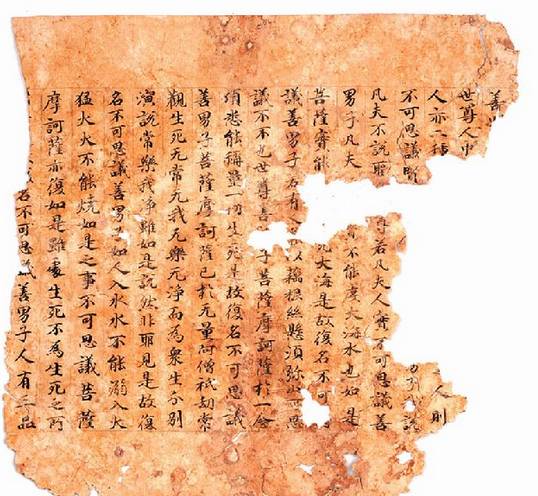 善
世尊人中
人亦二種 人則
不可思議 說
凡夫不說耶 若凡夫人實不可思議善
男子凡夫 不能度大海水也如是
菩薩實能 大海是故復名不可
議善男子若有 以藕根絲懸須弥 思
議不不也世尊善 子菩薩摩訶薩於一念
頃悉能稱量一切生死是故復名不可思議
善男子菩薩摩訶薩已於无量阿僧祇劫常
觀生死无常无我无樂无淨而為衆生分別
演說常樂我淨雖如是說然非耶見是故復
名不可思議善男子如人入水水不能溺入大
猛火火不能燒如是之事不可思議菩薩
摩訶薩亦復如是雖處生死不為生死之所
名不可思議善男子人有三品